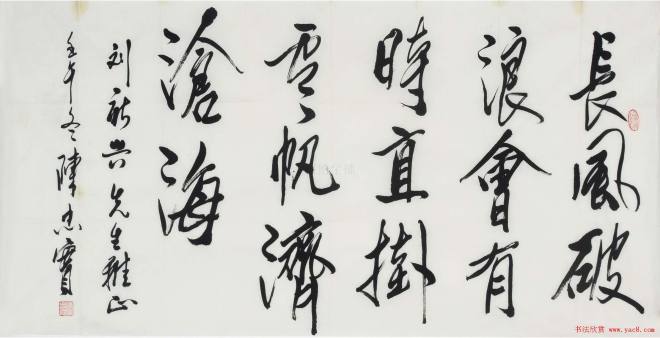 長風破
浪會有
時直掛
雲帆濟
滄海
刘新先生雅正
壬午冬陳忠實
书法欣赏
www.yac8.com